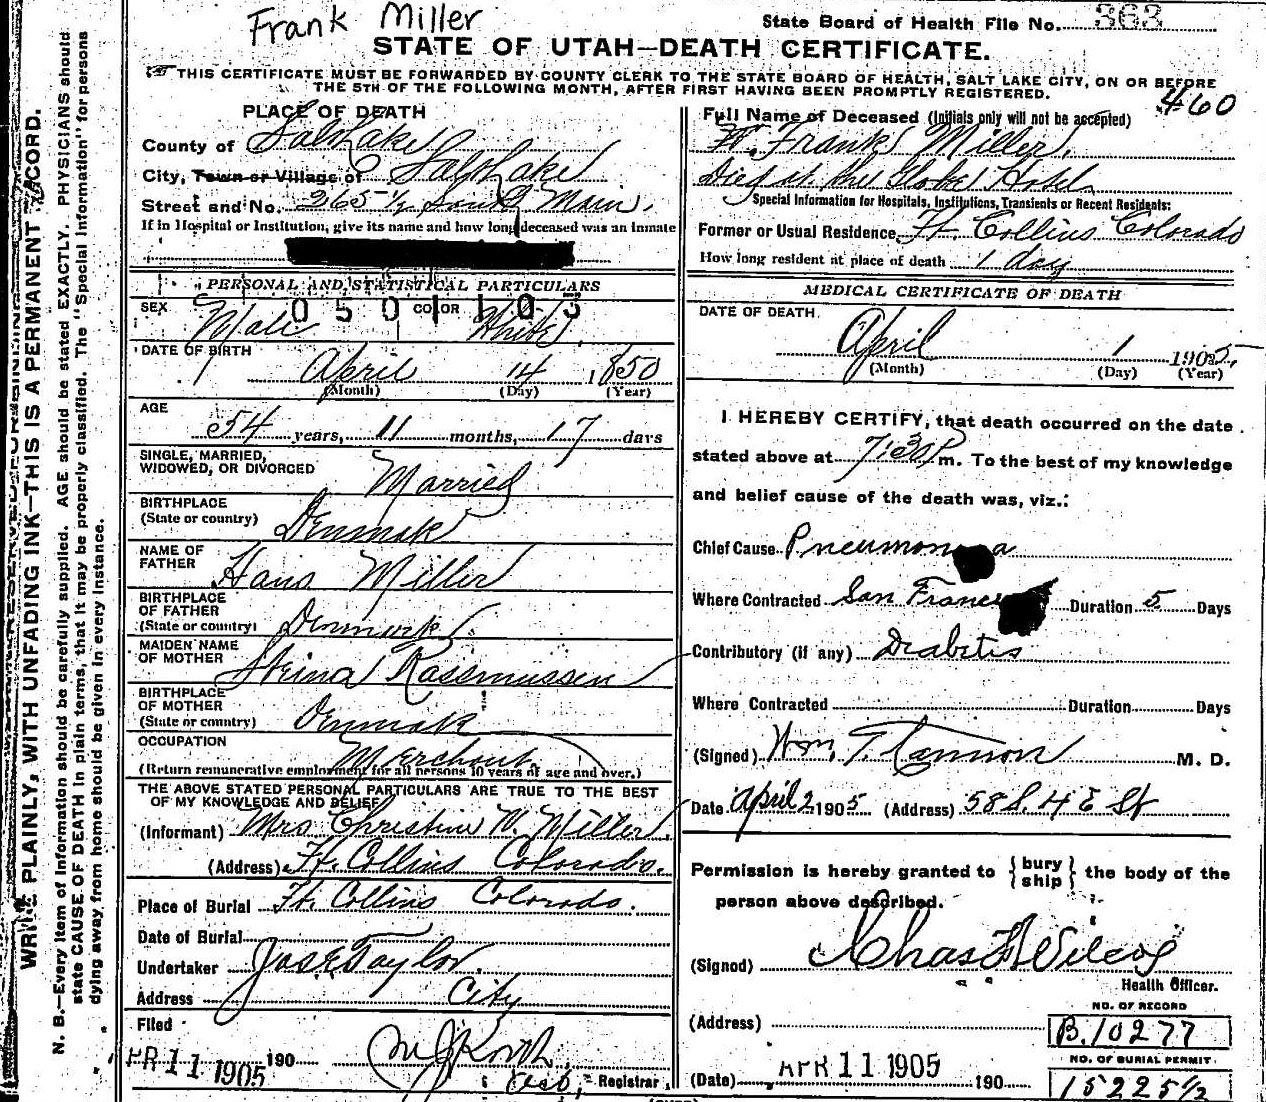 Frank Miller
State Board of Health File No. 363
STATE OF UTAH—DEATH CERTIFICATE.
THIS CERTIFICATE MUST BE FORWARDED BY COUNTY CLERK TO THE STATE BOARD OF HEALTH, SALT LAKE CITY, ON OR BEFORE
THE 5TH OF THE FOLLOWING MONTH, AFTER FIRST HAVING BEEN PROMPTLY REGISTERED.
460
WRITE PLAINLY, WITH UNFADING INK—THIS IS A PERMANENT RECORD.
N. B.—Every item of information should be carefully supplied. AGE should be stated EXACTLY. PHYSICIANS should
state CAUSE OF DEATH in plain terms, that it may be properly classified. The "Special Information" for persons
dying away from home should be given in every instance.
PLACE OF DEATH
County of Salt Lake
City, Town or Village of Salt Lake
Street and No. 265 1/2 South Main.
If in Hospital or Institution, give its name and how long deceased was an inmate
PERSONAL AND STATISTICAL PARTICULARS
0501103
SEX Male COLOR White
DATE OF BIRTH
April 14 1850
(Month) (Day) (Year)
AGE
54 years, 11 months, 17 days
SINGLE, MARRIED,
WIDOWED, OR DIVORCED Married
BIRTHPLACE
(State or country) Denmark
NAME OF
FATHER Hans Miller
BIRTHPLACE
OF FATHER
(State or country) Denmark
MAIDEN NAME
OF MOTHER Rassmussen
BIRTHPLACE
OF MOTHER
(State or country) Denmark
OCCUPATION Merchant
(Return remunerative employment for all persons 10 years of age and over.)
THE ABOVE STATED PERSONAL PARTICULARS ARE TRUE TO THE BEST
OF MY KNOWLEDGE AND BELIEF
(Informant) Mrs Christine W. Miller
(Address) Ft. Collins Colorado.
Place of Burial Ft. Collins Colorado.
Date of Burial
Undertaker Jos E Taylor
Address City
Filed
APR 11 1905 190
Registrar
Full Name of Deceased (Initials only will not be accepted)
F. Frank Miller.
Died at the Globe Hotel
Special Information for Hospitals, Institutions, Transients or Recent Residents:
Former or Usual Residence Ft. Collins Colorado
How long resident at place of death 1 day
MEDICAL CERTIFICATE OF DEATH
DATE OF DEATH
April 1 1905.
(Month) (Day) (Year)
I HEREBY CERTIFY, that death occurred on the date
stated above at 7:30 P m. To the best of my knowledge
and belief cause of the death was, viz.:
Chief Cause Pneumonia
Where Contracted San Duration 5 Days
Contributory (if any) Diabetis
Where Contracted Duration Days
(Signed) Wm. T. Cannon M. D.
Date April 2 1905 (Address) 58 S. 4 E St
Permission is hereby granted to { bury ship } the body of the
person above described.
(Signed) Chas F Wilcox
Health Officer.
(Address)
NO. OF RECORD
B.10277
NO. OF BURIAL PERMIT
15225 1/2
(Date) APR 11 1905 190
(OVER)